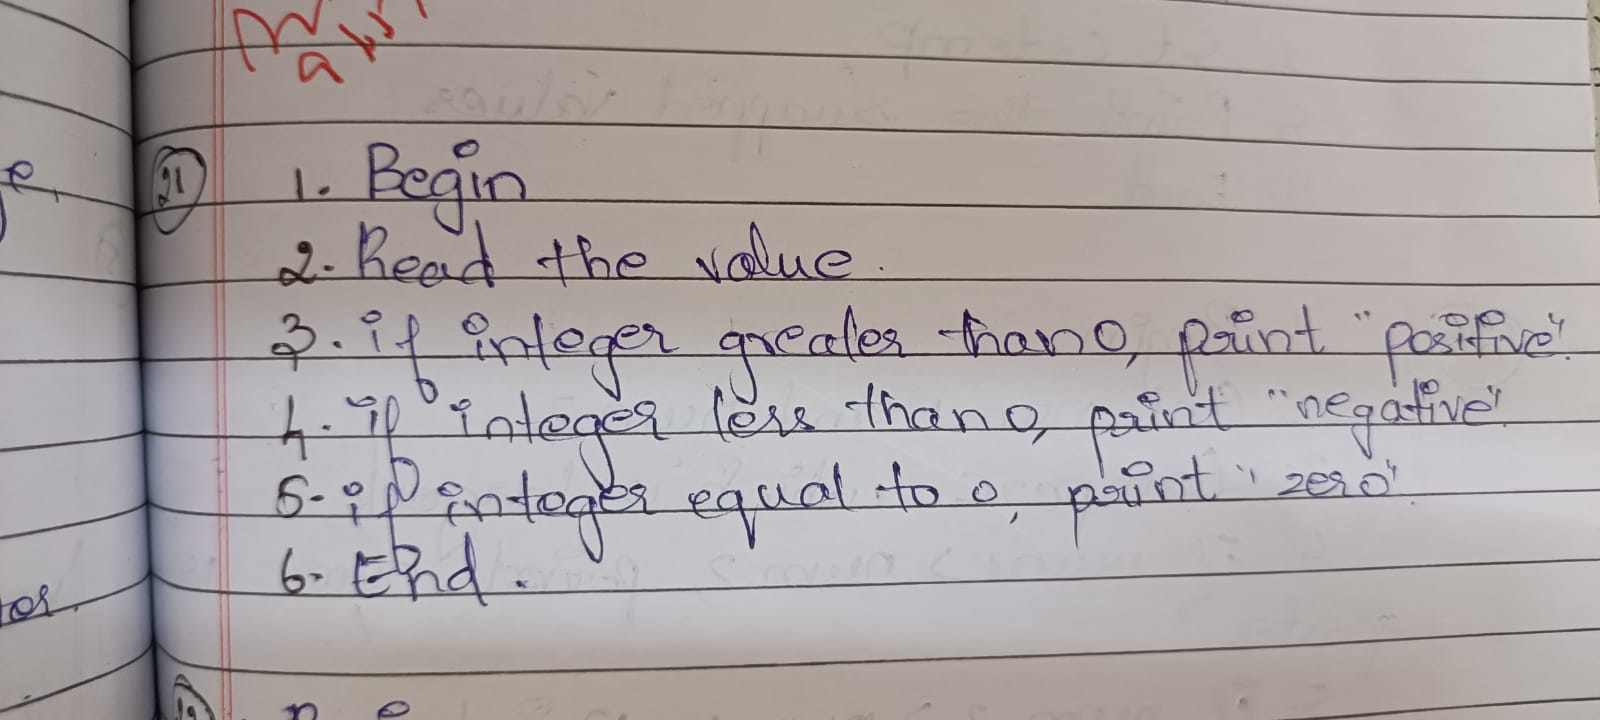 21
1. Begin
2. Read the value.
3. if integer greater than 0, print "positive".
4. if integer less than 0, print "negative".
5. if integer equal to 0, print "zero".
6. End.